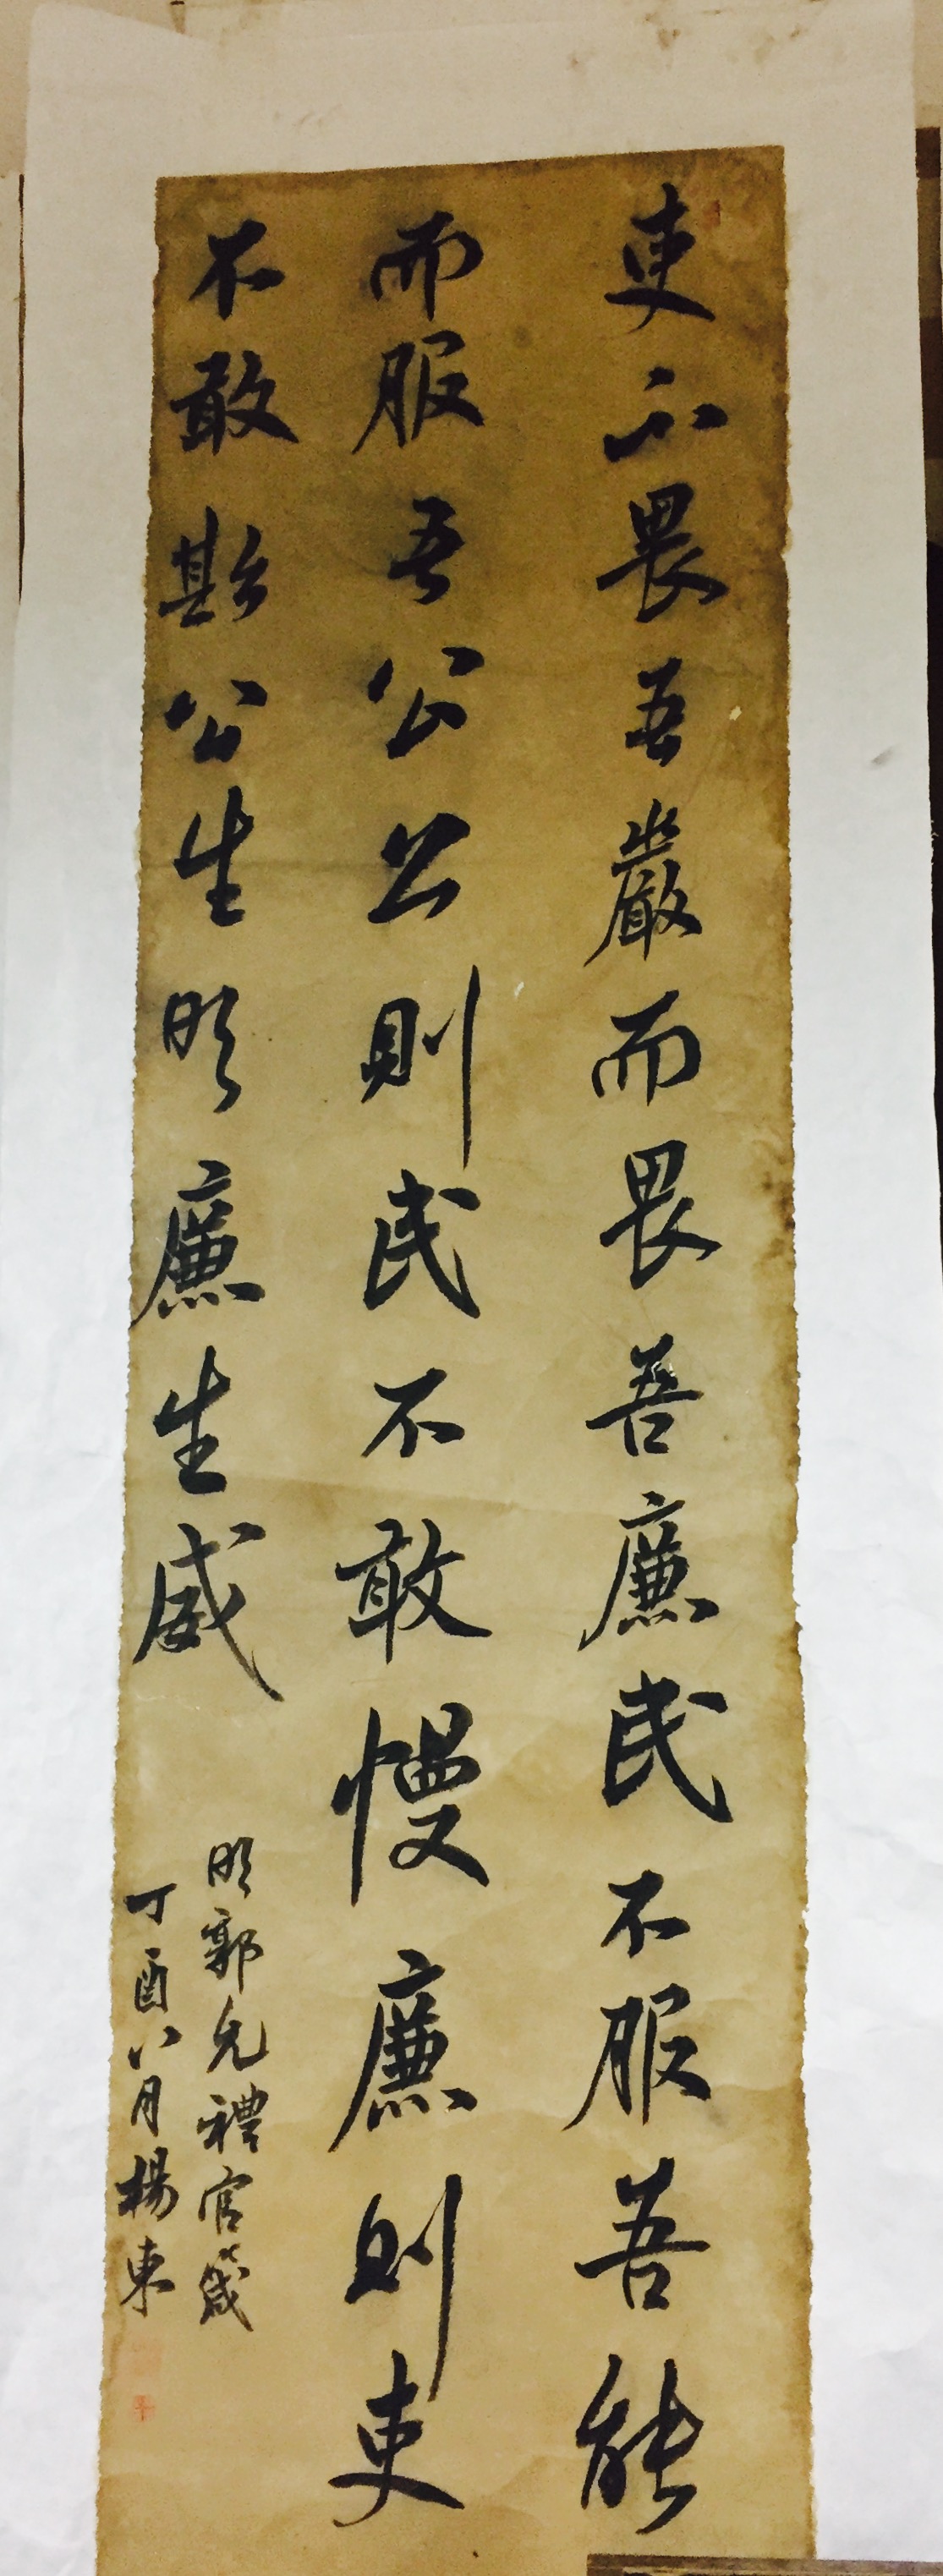 吏不畏吾嚴而畏吾廉民不服吾能
而服吾公公則民不敢慢廉則吏
不敢欺公生明廉生威
明郭允禮官箴
丁酉八月楊東